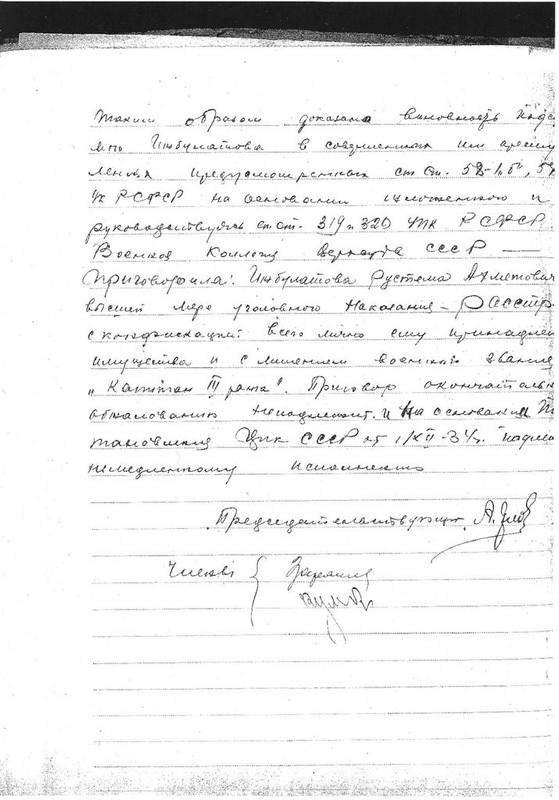 Таким образом доказана виновность подс
мто Инбулатова в совершении им преступ
ления предусмотренных ст ст. 58-1 "б", 58
УК РСФСР на основании изложенного и
руководствуясь ст ст. 319 и 320 УПК РСФСР
Военная Коллегия Верхсуда СССР —
Приговорила: Инбулатова Рустема Ахметович
высшей мере уголовного наказания – Расстр
с конфискацией всего лично ему принадлеж
имущества и с лишением военного звания
„Капитан III ранга". Приговор окончательн
обжалованию неподлежит. и На основании По
тановления ЦИК СССР от 1/XII-34г. подле
немедленному исполнению
Председательствующий А. Орлов
Члены { Зарянов